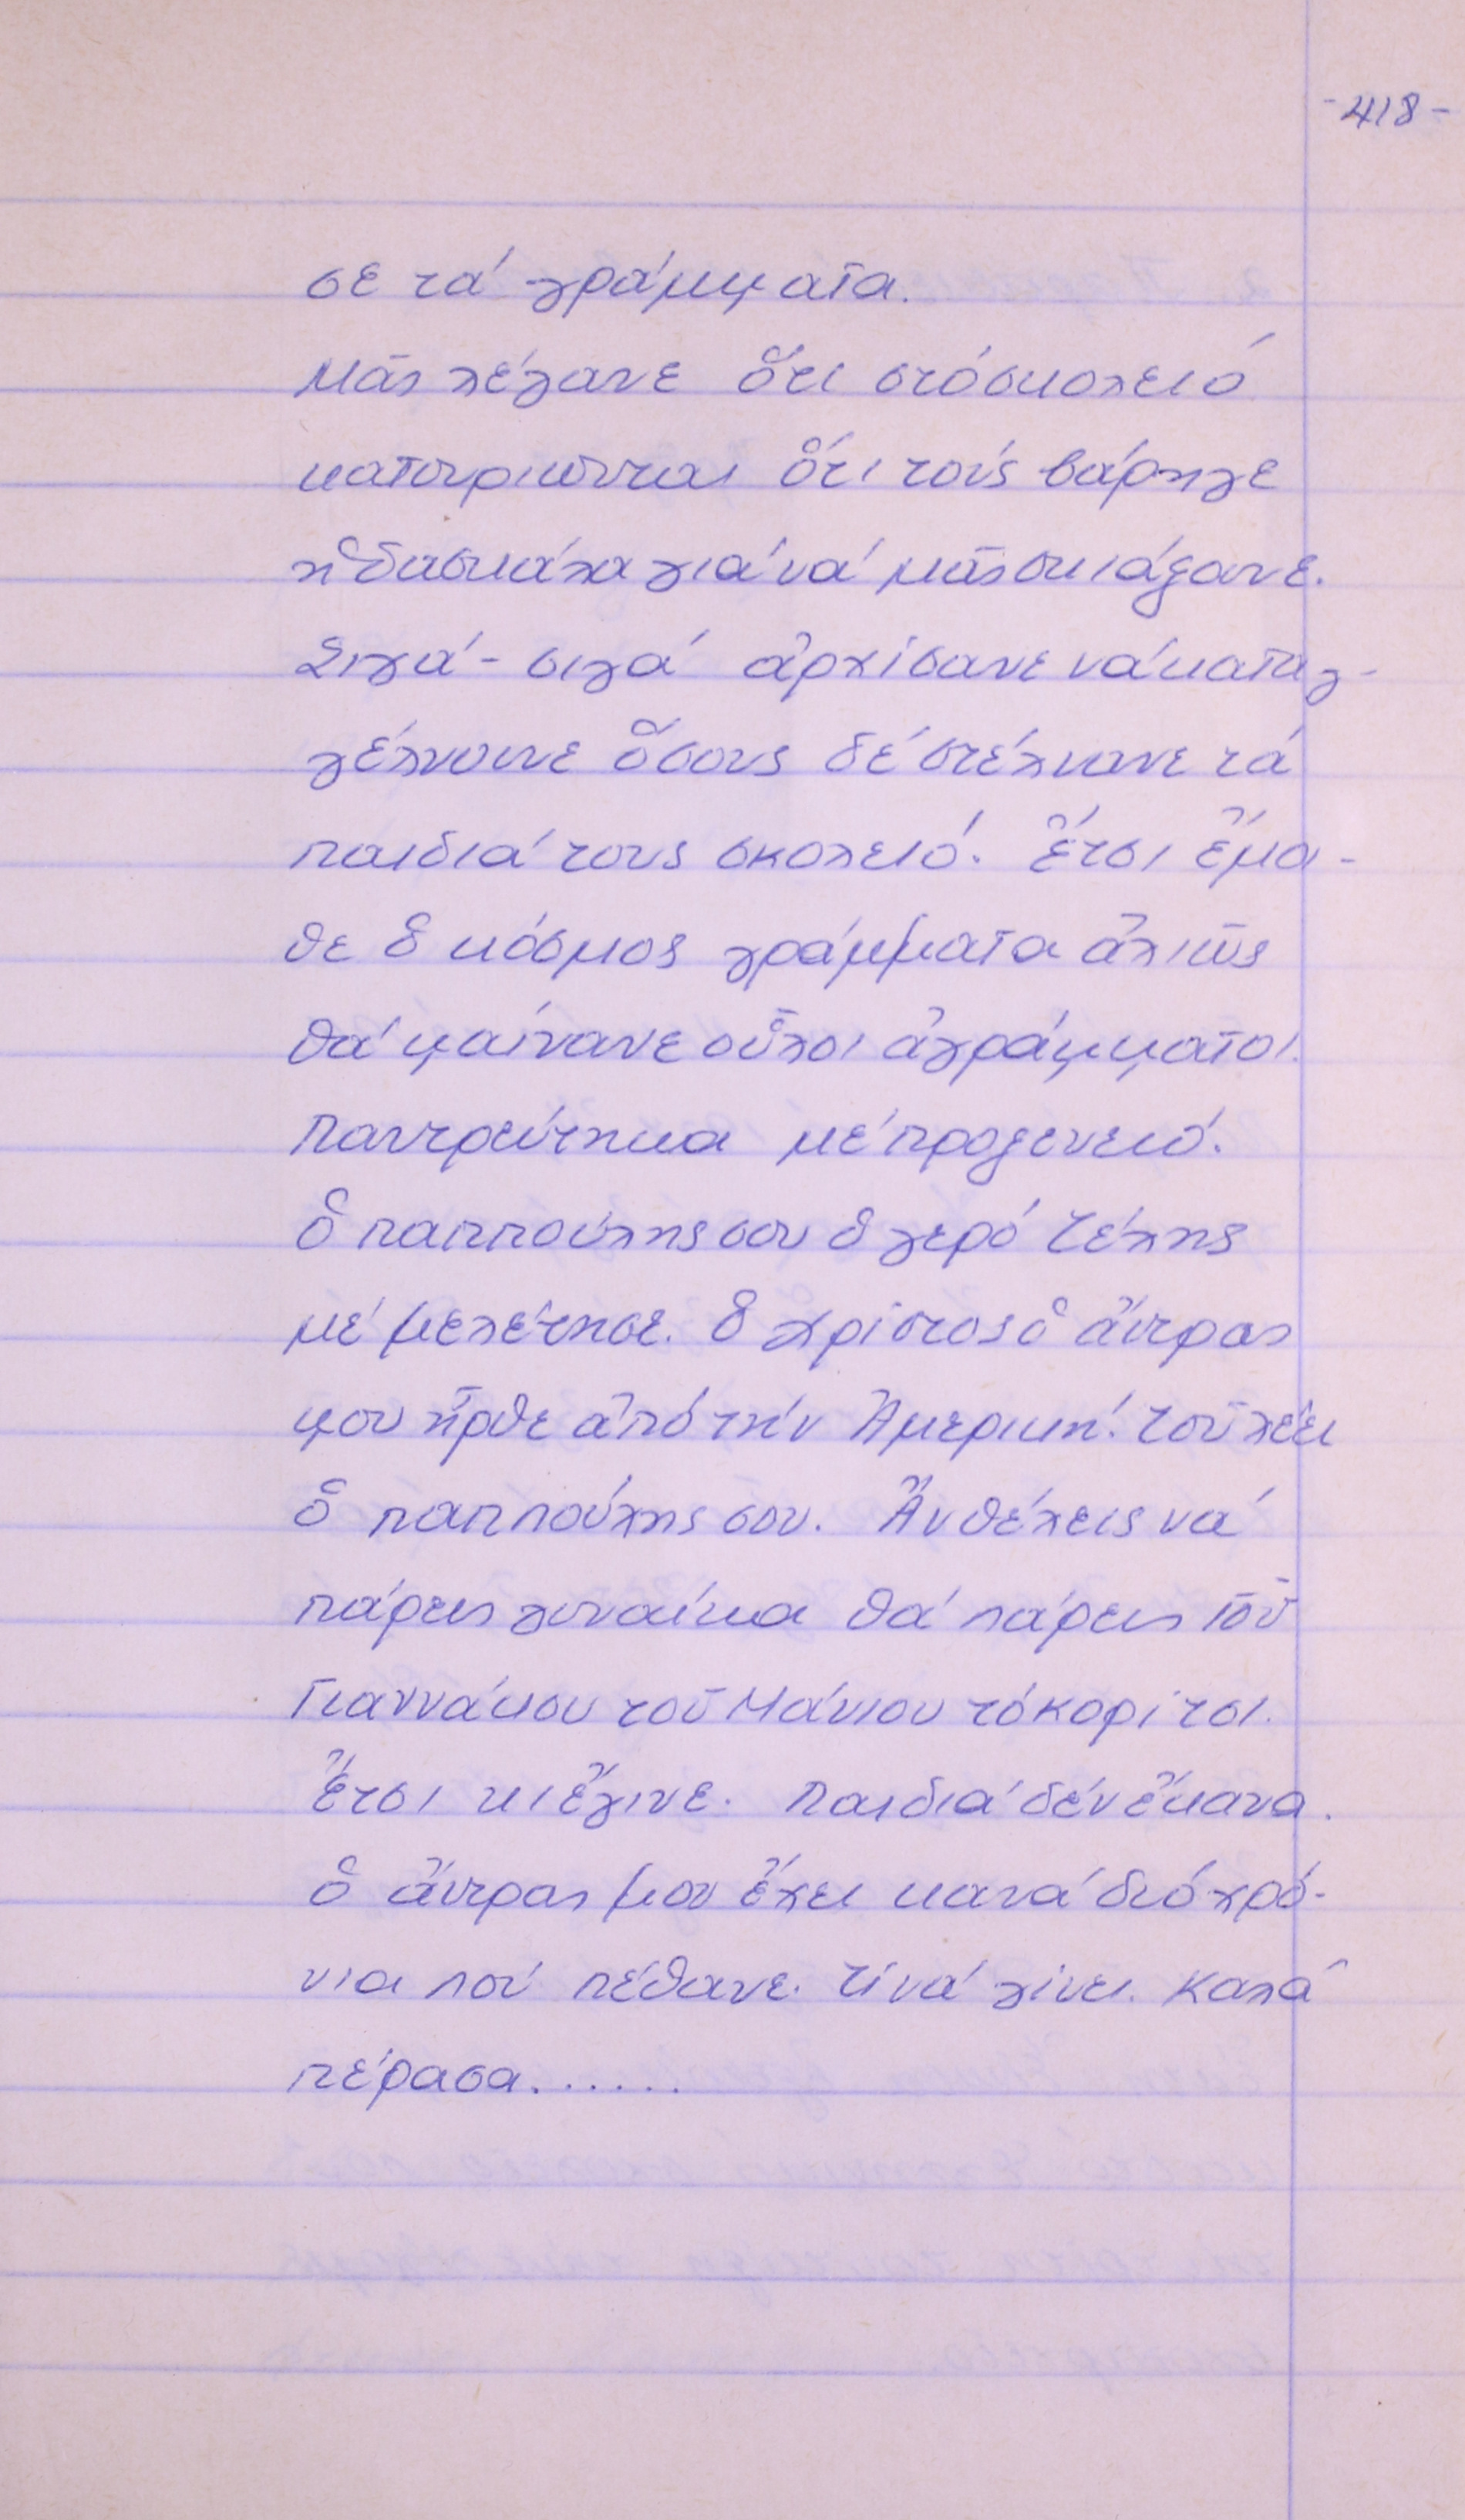 -418-
σε τά γράμματα.
Μᾶς λέγανε ὅτι στό σκολειό
κατουριῶνται ὅτι τούς βάρηγε
ἡ δασκάλα γιά νά μᾶς σκιάξανε.
Σιγά-σιγά ἀρχίσανε νά καταγ-
γέλνουνε ὅσους δέ στέλνανε τά
παιδιά τους σκολειό. Ἔτσι ἔμα-
θε ὁ κόσμος γράμματα ἀλιῶς
θά μαίνανε οὗλοι ἀγράμματοι.
Παντρεύτηκα μέ προξενειό.
Ὁ παππούλης σου ὁ γερό Τέλης
μέ μελέτησε. Ὁ Χρίστος ὁ ἄντρας
μου ἦρθε ἀπό τήν Ἀμερική. Τοῦ λέει
ὁ παππούλης σου. Ἄν θέλεις νά
πάρεις γυναίκα θά πάρεις τοῦ
Γιαννάκου τοῦ Μάνιου τό κορίτσι.
Ἔτσι κι ἔγινε. Παιδιά δέν ἔκανα.
Ὁ ἄντρας μου ἔχει κανά διό χρό-
νια πού πέθανε. Τί νά γίνει. Καλά
πέρασα......